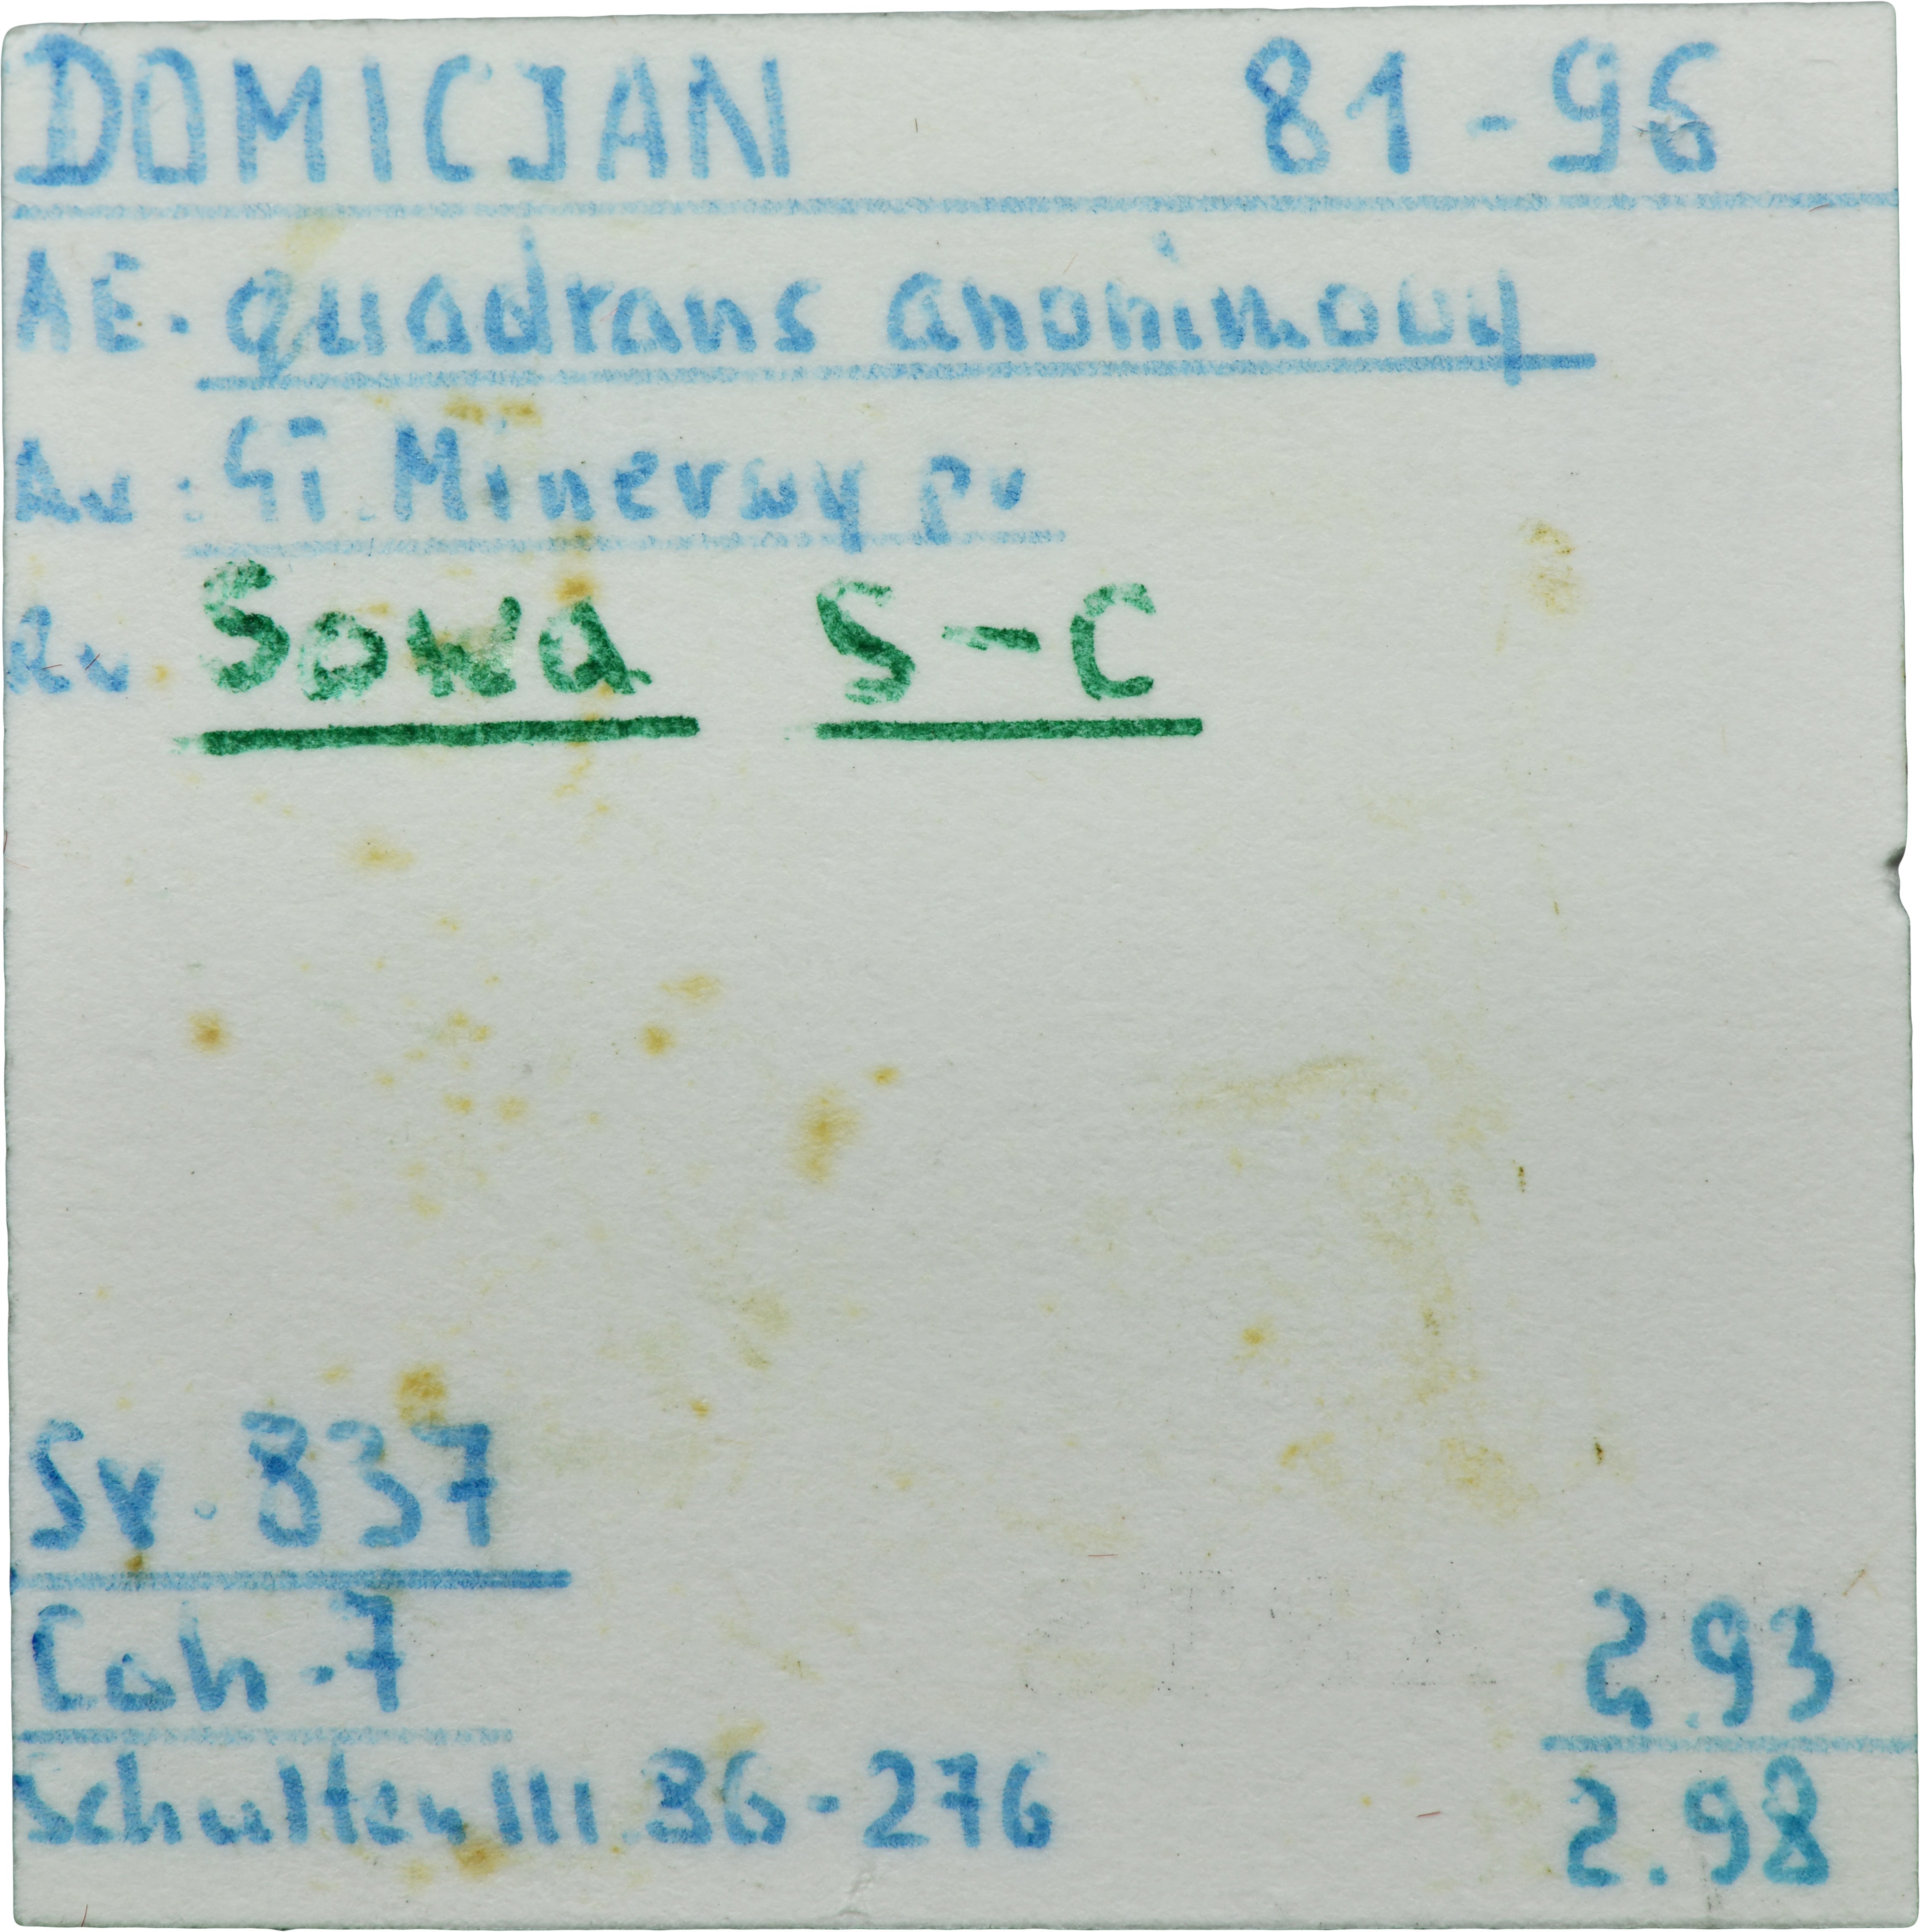 DOMICJAN 81-96
AE. quadrans anonimowy
Av: Gł. Minerwy pr
Rv. Sowa S-C
Sr. 837
Coh-7
Schulten III. 86-276
2.93
2.98